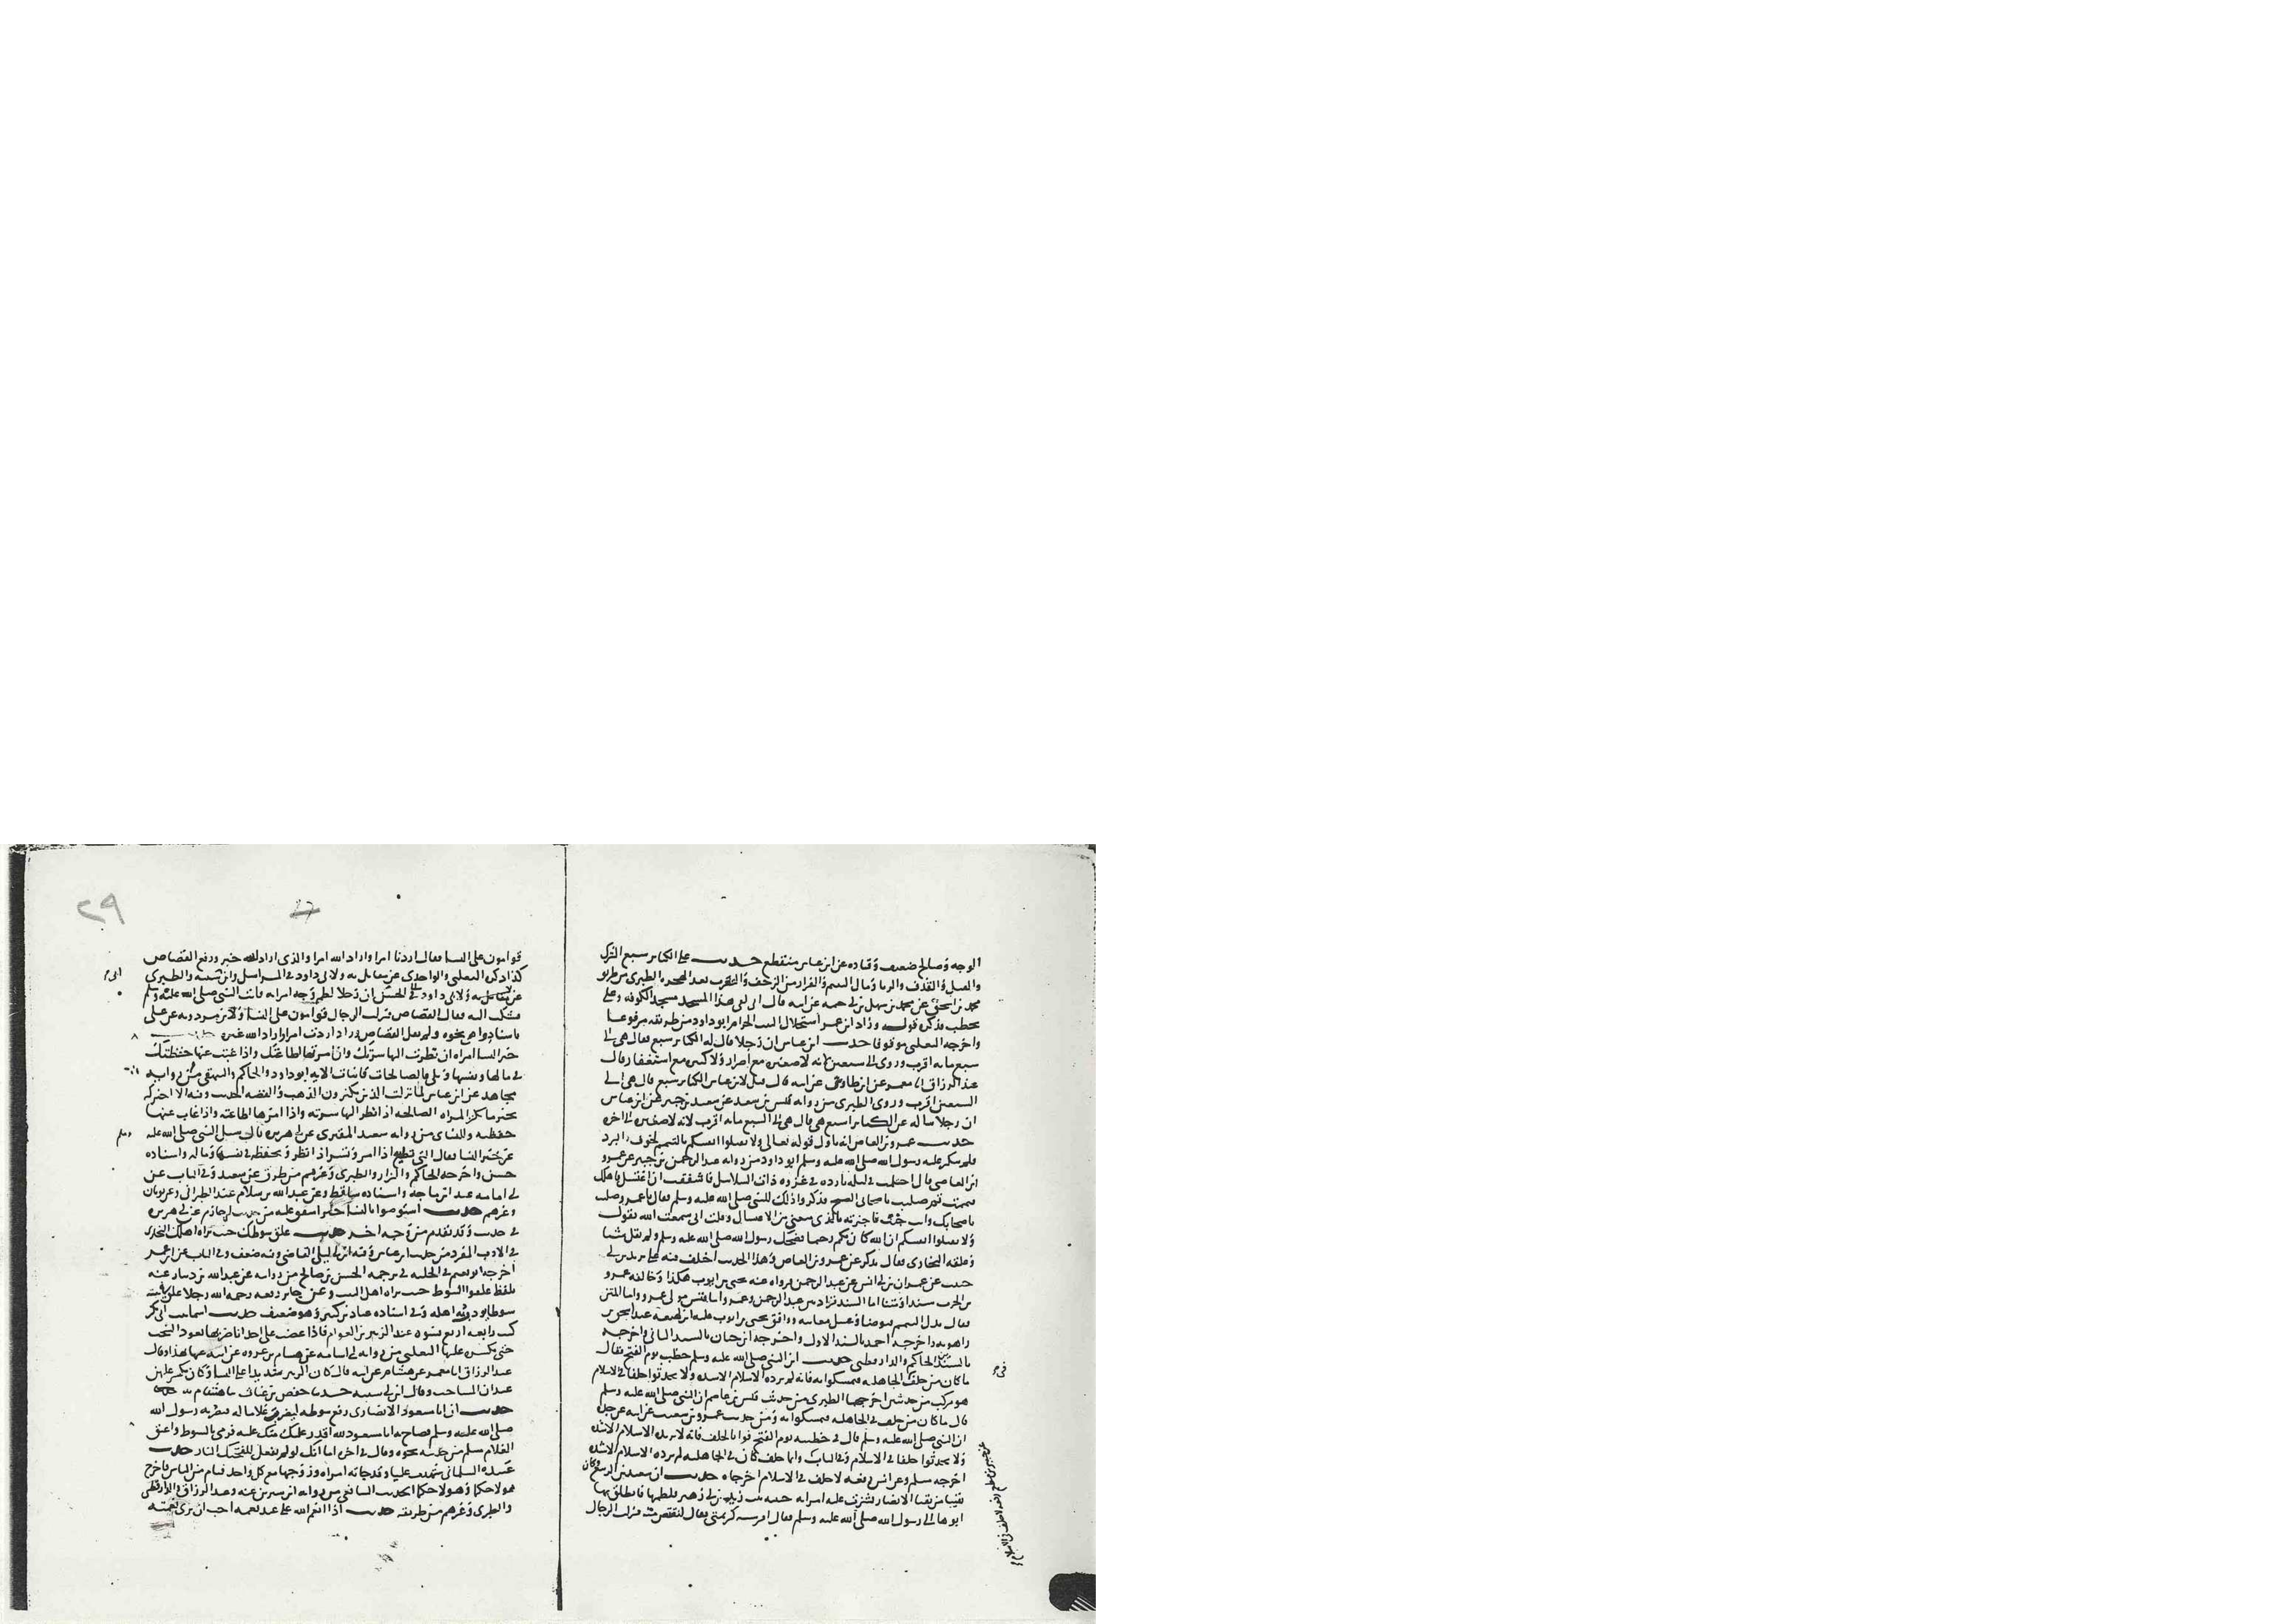 الوجه وصالح ضعيف وقتاده عن ابن عباس منقطع حديث علي الكبائر سبع الشرك
والقتل والقذف والربا ومال اليتيم والفرار من الزحف والتعرب بعد الهجره الطبري من طريق
محمد بن اسحق عن محمد بن سهل بن ابي حثمه عن ابيه قال اني لفي هذا المسجد مسجد الكوفه وعلي
يخطب فذكره قوله وزاد ابن عمر استحلال البيت الحرام ابو داود من طريقه مرفوعا
واخرجه الثعلبي موقوفا حديث ابن عباس ان رجلا قال له الكبائر سبع فقال هي الى
سبع مايه اقرب وروي الى سبعين لانه لا صغيره مع اصرار ولا كبيره مع استغفار قال
عبد الرزاق انا معمر عن ابن طاوس عن ابيه قال قيل لابن عباس الكبائر سبع قال هي الى
السبعين اقرب وروى الطبري من روايه قيس بن سعد عن سعيد بن جبير عن ابن عباس
ان رجلا ساله عن الكبائر اسبع هي قال هي الى السبع مايه اقرب لانه لا صغيره الى اخره
حديث عمرو بن العاص انه تاول قوله تعالى ولا تقتلوا انفسكم بالتيمم لخوف البرد
فلم ينكر عليه رسول الله صلى الله عليه وسلم ابو داود من روايه عبد الرحمن بن جبير عن عمرو
ابن العاصي قال احتلمت في ليله بارده في غزوه ذات السلاسل فاشفقت ان اغتسل فاهلك
فتيممت ثم صليت باصحابي الصبح فذكروا ذلك للنبي صلى الله عليه وسلم فقال يا عمرو صليت
باصحابك وانت جنب فاخبرته بالذي منعني من الاغتسال وقلت اني سمعت الله يقول
ولا تقتلوا انفسكم ان الله كان بكم رحيما فضحك رسول الله صلى الله عليه وسلم ولم يقل شيئا
وعلقه البخاري فقال يذكر عن عمرو بن العاص وهذا الحديث اختلف فيه على يزيد بن ابي
حبيب عن عمران بن ابي انس عن عبد الرحمن فرواه عنه يحيى بن ايوب هكذا وخالفه عمرو
بن الحرث سندا ومتنا اما السند فزاد بين عبد الرحمن وعمرو ابا قيس مولى عمرو واما المتن
فقال بدل التيمم فتوضا وغسل مغابنه ووافق يحيى بن ايوب عليه ابن لهيعه عند اسحق بن
راهويه واخرجه احمد بالسند الاول واخرجه ابن حبان بالسند الثاني واخرجه
بالسندين الحاكم والدارقطني حديث ان النبي صلى الله عليه وسلم خطب يوم الفتح فقال
ما كان من حلف الجاهليه فتمسكوا به فانه لم يزده الاسلام الا شده ولا تحدثوا حلفا في الاسلام
هو مركب من حديثين اخرجهما الطبري من حديث قيس بن عاصم ان النبي صلى الله عليه وسلم
قال ما كان من حلف في الجاهليه فتمسكوا به ومن حديث عمرو بن شعيب عن ابيه عن جده
ان النبي صلى الله عليه وسلم قال في خطبته يوم الفتح فوا بالحلف فانه لا يزيده الاسلام الا شده
ولا تحدثوا حلفا في الاسلام وفي الباب وايما حلف كان في الجاهليه لم يزده الاسلام الا شده
اخرجه مسلم وعن انس رفعه لا حلف في الاسلام اخرجاه حديث ان سعد بن الربيع وكان
نقيبا من نقبا الانصار نشزت عليه امراته حبيبه بنت زيد بن ابي زهير فلطمها فانطلق بها
ابوها الى رسول الله صلى الله عليه وسلم فقال افرشته كريمتي فقال لتقتص منه فنزلت الرجال
عن جبير بن مطعم رفعه لا حلف في الاسلام
٢٩
قوامون على النسا فقال اردنا امرا واراد الله امرا والذي اراد الله خير ورفع القصاص
كذا ذكره الثعلبي والواحدي عن مقاتل به ولابي داود في المراسيل وابن ابي شيبه والطبري
عن الحسن ان رجلا لطم وجه امراته فاتت النبي صلى الله عليه وسلم
فشكت اليه فقال القصاص فنزلت الرجال قوامون على النسا ولابن مردويه عن علي
باسناد واه نحوه ولم يقل القصاص وزاد اردت امرا واراد الله غيره
خير النسا امراه ان نظرت اليها سرتك وان امرتها اطاعتك واذا غبت عنها حفظتك
في مالها ونفسها وتلى فالصالحات قانتات الايه ابو داود والحاكم والبيهقي من روايه
مجاهد عن ابن عباس لما نزلت الذين يكنزون الذهب والفضه الحديث وفيه الا اخبركم
بخير ما يكنز المراه الصالحه اذا نظر اليها سرته واذا امرها اطاعته واذا غاب عنها
حفظته وللنساي من روايه سعيد المقبري عن ابي هريره قال سئل النبي صلى الله عليه
عن خير النسا فقال التي تطيع اذا امر وتسر اذا نظر وتحفظه في نفسها وماله واسناده
حسن واخرجه الحاكم والبزار والطبري وغيرهم من طرق عن سعيد وفي الباب عن
ابي امامه عند ابن ماجه واسناده ساقط وعن عبد الله بن سلام عند الطبراني وعن ثوبان
وغيرهم حديث استوصوا بالنسا خيرا متفق عليه من حديث ابي حازم عن ابي هريره
في حديث وقد تقدم من وجه اخر حديث علق سوطك حيث يراه اهلك البخاري
في الادب المفرد من حديث ابن عباس وفيه ابن ابي ليلى القاضي وفيه ضعف وفي الباب عن ابن عمر
اخرجه ابو نعيم في الحليه في ترجمه الحسن بن صالح من روايته عن عبد الله بن دينار عنه
بلفظ علقوا السوط حيث يراه اهل البيت وعن جابر رفعه رحم الله رجلا علق في بيته
سوطا يودب به اهله وفي اسناده عباد بن كثير وهو ضعيف حديث اسما بنت ابي بكر
كنت رابعه اربع نسوه عند الزبير بن العوام فاذا غضب على احدانا ضربها بعود المشجب
حتى يكسره عليها الثعلبي من روايه ابي اسامه عن هشام بن عروه عن ابيه عنها بهذا وقال
عبد الرزاق انا معمر عن هشام عن ابيه قال كان الزبير شديدا على النسا وكان يكسر عليهن
عيدان المشاجب وقال ابن ابي شيبه حدثنا حفص بن غياث ثنا هشام به
حديث ان ابا مسعود الانصاري رفع سوطه ليضرب غلاما له فبصر به رسول الله
صلى الله عليه وسلم فصاح به ابا مسعود لله اقدر عليك منك عليه فرمى بالسوط واعتق
الغلام مسلم من حديثه نحوه وقال في اخره اما انك لو لم تفعل للفحتك النار حديث
عبيده السلماني شهدت عليا وقد جاته امراه وزوجها مع كل واحد فئام من الناس فاخرج
هولا حكما وهولا حكما الحديث الشافعي من روايه ابن سيرين عنه وعبد الرزاق والدارقطني
والطبري وغيرهم من طريقه حديث اذا انعم الله على عبد نعمه احب ان ترى نعمته